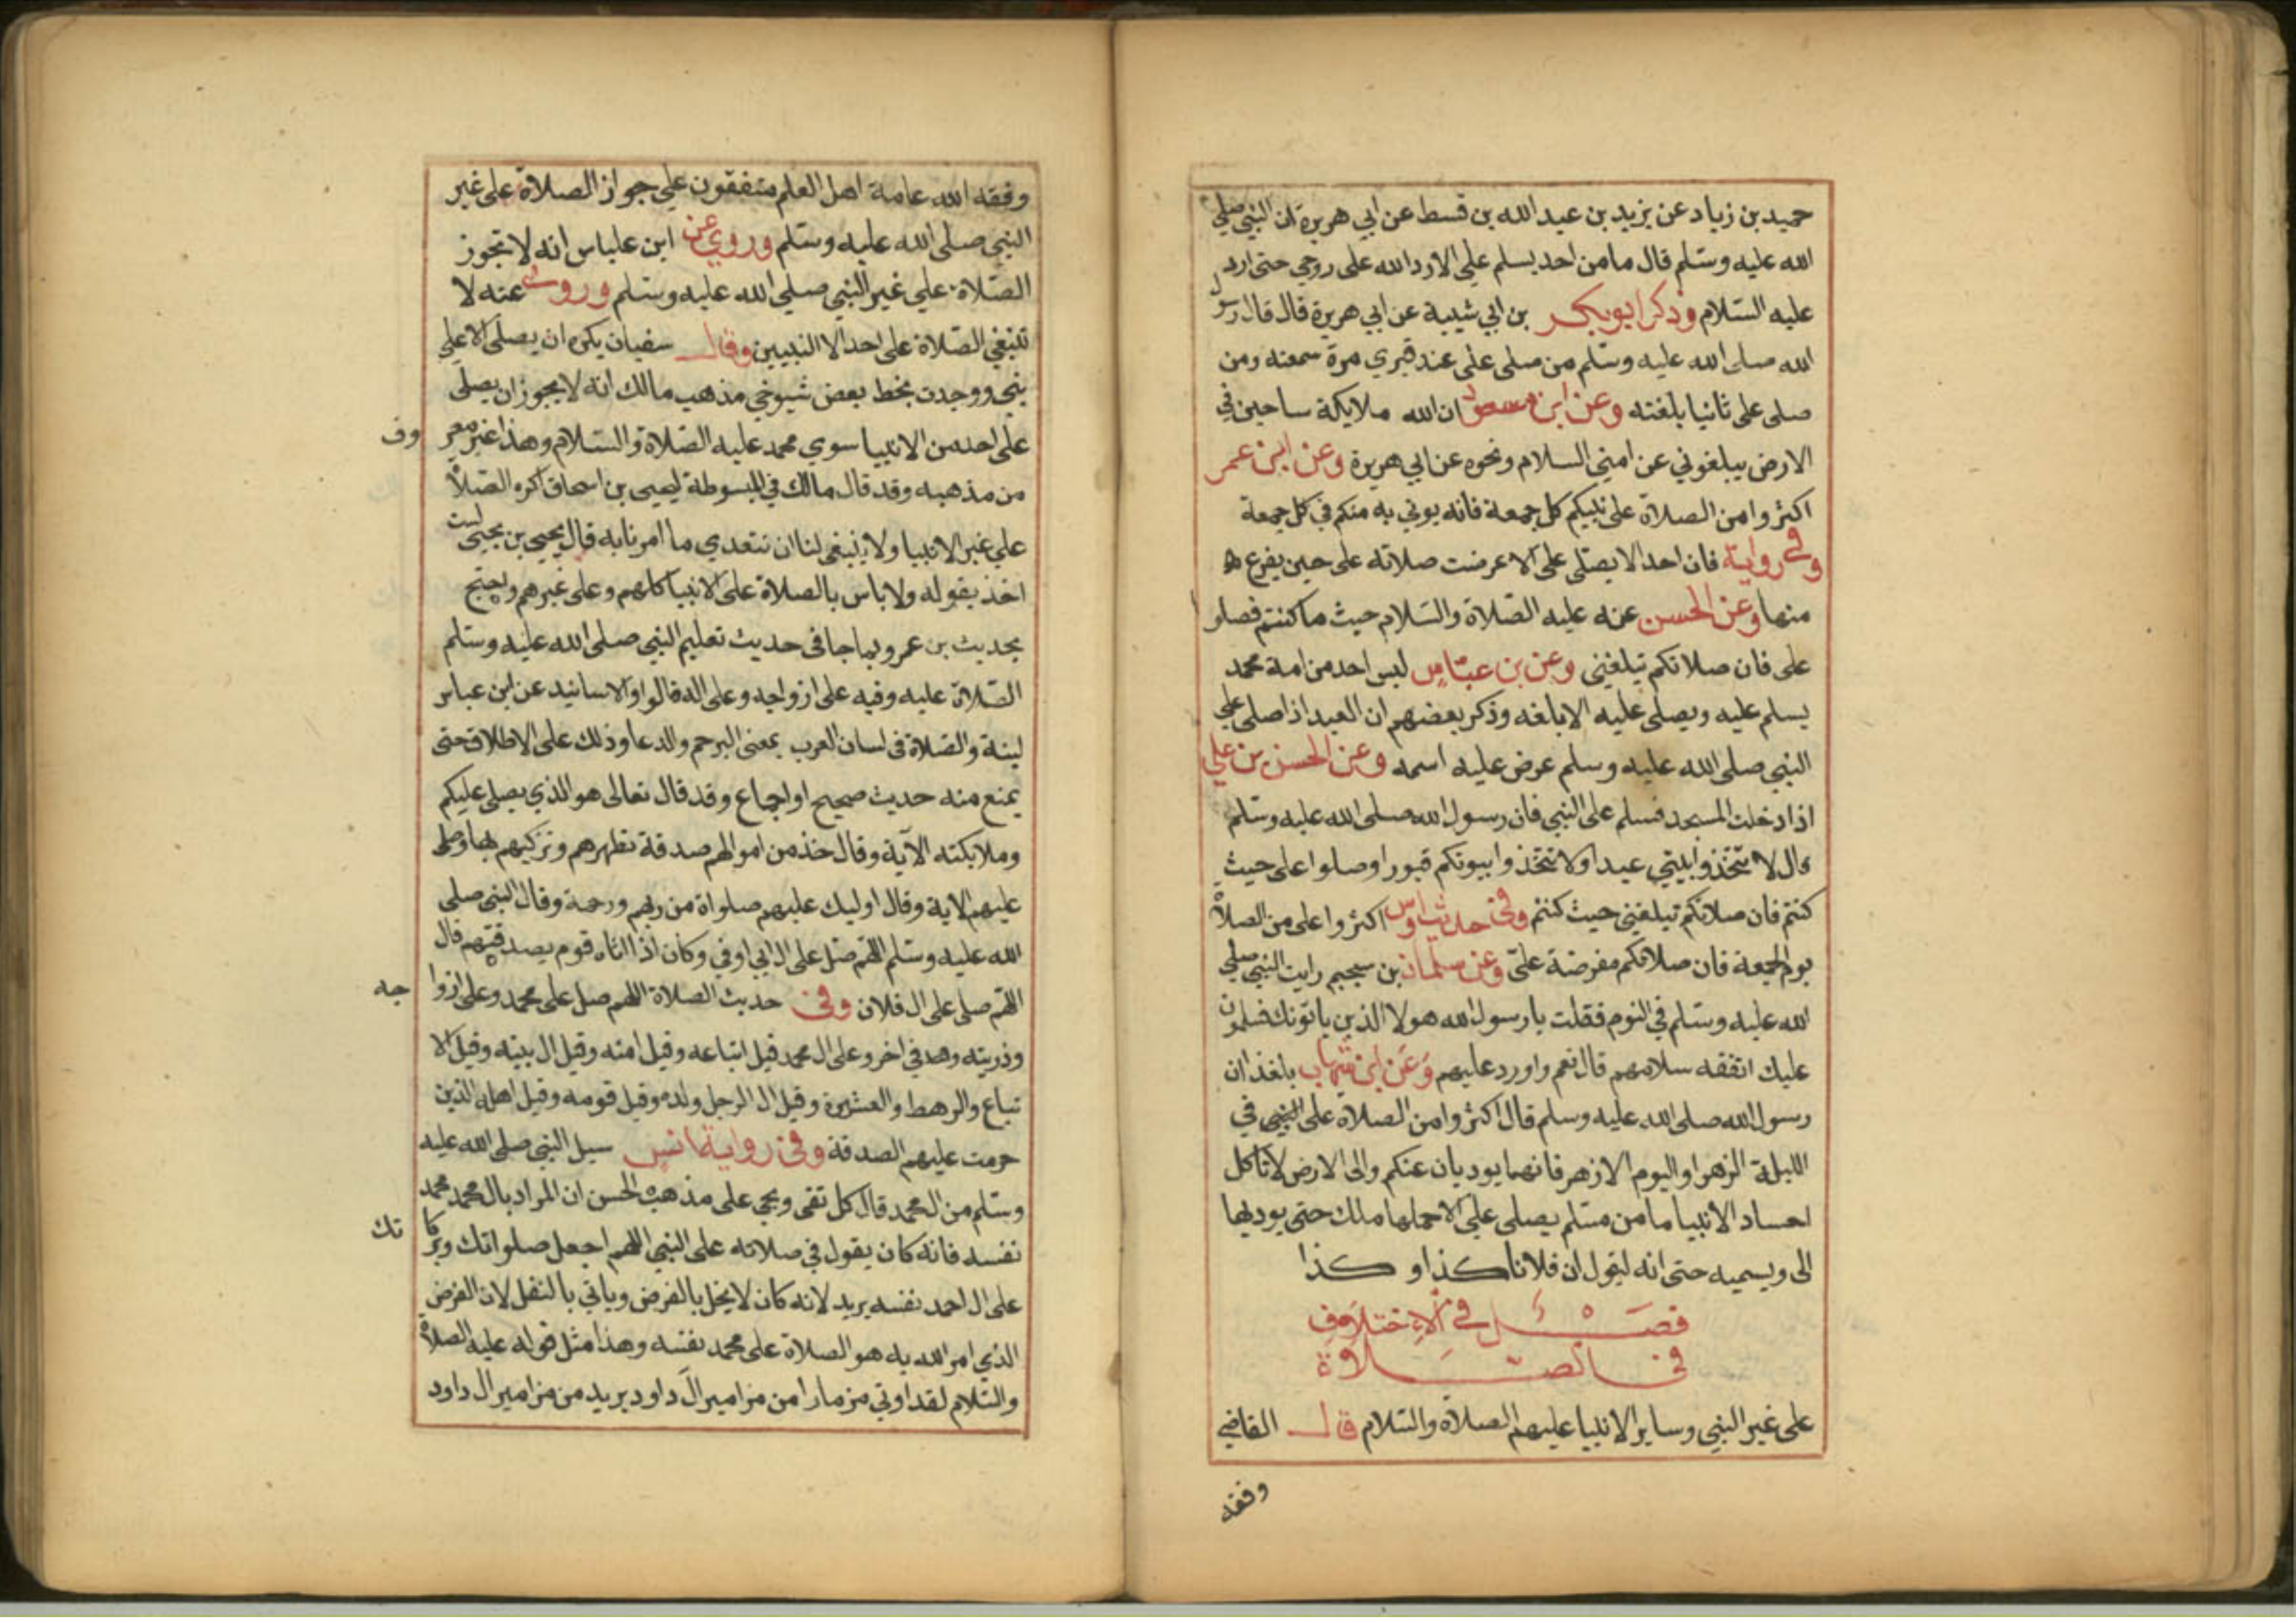 حميد بن زياد عن يزيد بن عبد الله بن قسط عن ابي هريرة ان النبي صلي
الله عليه وستلم قال ما من احد يسلم علي الا رد الله على روحي حتى ارد
عليه السلام وذكر ابو بكر بن ابي شيبة عن ابي هريرة قال قال رسول
الله صلى الله عليه وسلم من صلى على عند قبري مرة سمعته ومن
صلى على ثانيا بلغته وعن ابن مسعود ان الله ملايكة ساحين في
الارض يبلغوني عن امتي السلام ونحوه عن ابي هريرة وعن ابن عمر
اكثروا من الصلاة على نبيكم كل جمعة فانه يوتي به منكم في كل جمعة
وفي رواية فان احدا لا يصلى على الا عرضت صلاته على حين يفرع
منها وعن الحسن عنه عليه الصلاة والسلام حيث ما كنتم فصلوا
على فان صلاتكم تبلغني وعن بن عباس ليس احد من امة محمد
يسلم عليه ويصلى عليه الا بلغه وذكر بعضهم ان العبد اذا صلى على
النبي صلى الله عليه وسلم عرض عليه اسمه وعن الحسن بن علي
اذا دخلت المسجد فسلم على النبي فان رسول الله صلى الله عليه وسلم
قال لا تتخذوا بيتي عيدا ولا تتخذوا بيوتكم قبورا وصلوا على حيث
كنتم فان صلاتكم تبلغني حيث كنتم وفي حديث اوس اكثروا على من الصلاة
يوم الجمعة فان صلاتكم مفرضة علي وعن سلمان بن سحيم رايت النبي صلي
الله عليه وسلم في النوم فقلت يا رسول الله هولا الذين ياتونك فسلمون
عليك اتفقه سلامهم قال نعم واورد عليهم وعن ابن شهاب بلغذ ان
رسول الله صلى الله عليه وسلم قال اكثروا من الصلاة على النبي في
الليلة الزهرا واليوم الازهر فانهما يوديان عنكم والى الارض لا تاكل
اجساد الانبيا ما من مسلم يصلى علي الا حملها ملك حتى يوديها
الى ويسميه حتى انه ليقول ان فلانا كذا وكذا
فصل في الاختلاف
في الصلاة
على غير النبي وساير الانبيا عليهم الصلاة والسلام قال القاضي
وفقه
وفقه الله عامة اهل العلم متفقون علي جواز الصلاة على غير
النبي صلى الله عليه وسلم وروي عن ابن عباس انه لا تجوز
الصلاة علي غير النبي صلى الله عليه وسلم وروى عنه لا
تنبغي الصلاة على احد الا النبيين وقال سفيان يكره ان يصلى الا على
نبي ووجدت بخط بعض شيوخي مذهب مالك انه لا يجوز ان يصلى
على احد من الانبيا سوي محمد عليه الصلاة والسلام وهذا غير معروف
من مذهبه وقد قال مالك في المبسوطة ليحيى بن اسحاق اكره الصلاة
علي غير الانبيا ولا ينبغي لنا ان نتعدي ما امرنا به قال يحيى بن يحيى لست
اخذ بقوله ولا باس بالصلاة على الانبيا كلهم وعلى غيرهم ويحتج
بحديث بن عمر وبما جا في حديث تعليم النبي صلى الله عليه وسلم
الصلاة عليه وفيه على ازواجه وعلى اله قالوا والاسانيد عن ابن عباس
لينة والصلاة في لسان العرب بمعنى الترحم والدعا وذلك على الاطلاق حتى
يمنع منه حديث صحيح او اجماع وقد قال تعالى هو الذي يصلى عليكم
وملايكته الآية وقال خذ من اموالهم صدقة تطهرهم وتزكيهم بها وصل
عليهم الاية وقال اوليك عليهم صلواة من ربهم ورحمة وقال النبي صلى
الله عليه وسلم اللهم صل على ال ابي اوفي وكان اذا اتاه قوم بصدقتهم قال
اللهم صلى على ال فلان وفي حديث الصلاة اللهم صل على محمد وعلى ازواجه
وذريته وهد في اخر وعلى ال محمد قيل اتباعه وقيل امته وقيل ال بيته وقيل الا
تباع والرهط والعشيرة وقيل ال الرجل ولده وقيل قومه وقيل اهله الذين
حرمت عليهم الصدقة وفي رواية انس سيل النبي صلى الله عليه
وسلم من ال محمد قال كل تقي ويجي على مذهب الحسن ان المراد بال محمد محمد
نفسه فانه كان يقول في صلاته على النبي اللهم اجعل صلواتك وبركاتك
على ال احمد نفسه يريد لانه كان لا يخل بالفرض وياتي بالنفل لان الفرض
الذي امر الله به هو الصلاة على محمد نفسه وهذا مثل قوله عليه الصلاة
والسلام لقد اوتي مزمارا من مزامير آل داود يريد من مزامير ال داود